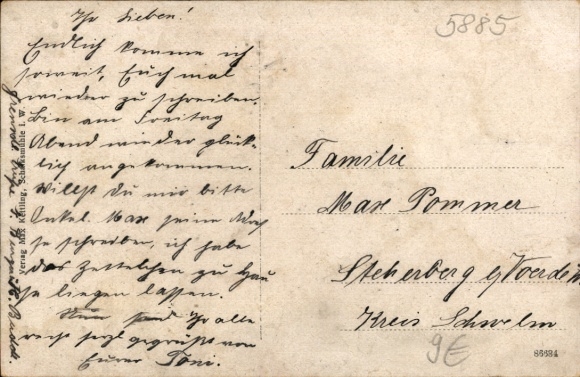 Ihr Lieben!
Endlich komme ich
soweit, Euch mal
wieder zu schreiben.
Bin am Freitag
Abend wieder glück-
lich angekommen.
Willst Du mir bitte
Onkel Max seine Adres
se schreiben, ich habe
das Zettelchen zu Hau
se liegen lassen.
Nun sind Ihr alle
recht herzl gegrüßt von
Eurer Toni.
Verlag Max Kettling, Schalksmühle i. W.
5885
Familie
Max Pommer
Steherberg b/Voerde
Kreis Schwelm
9€
86684